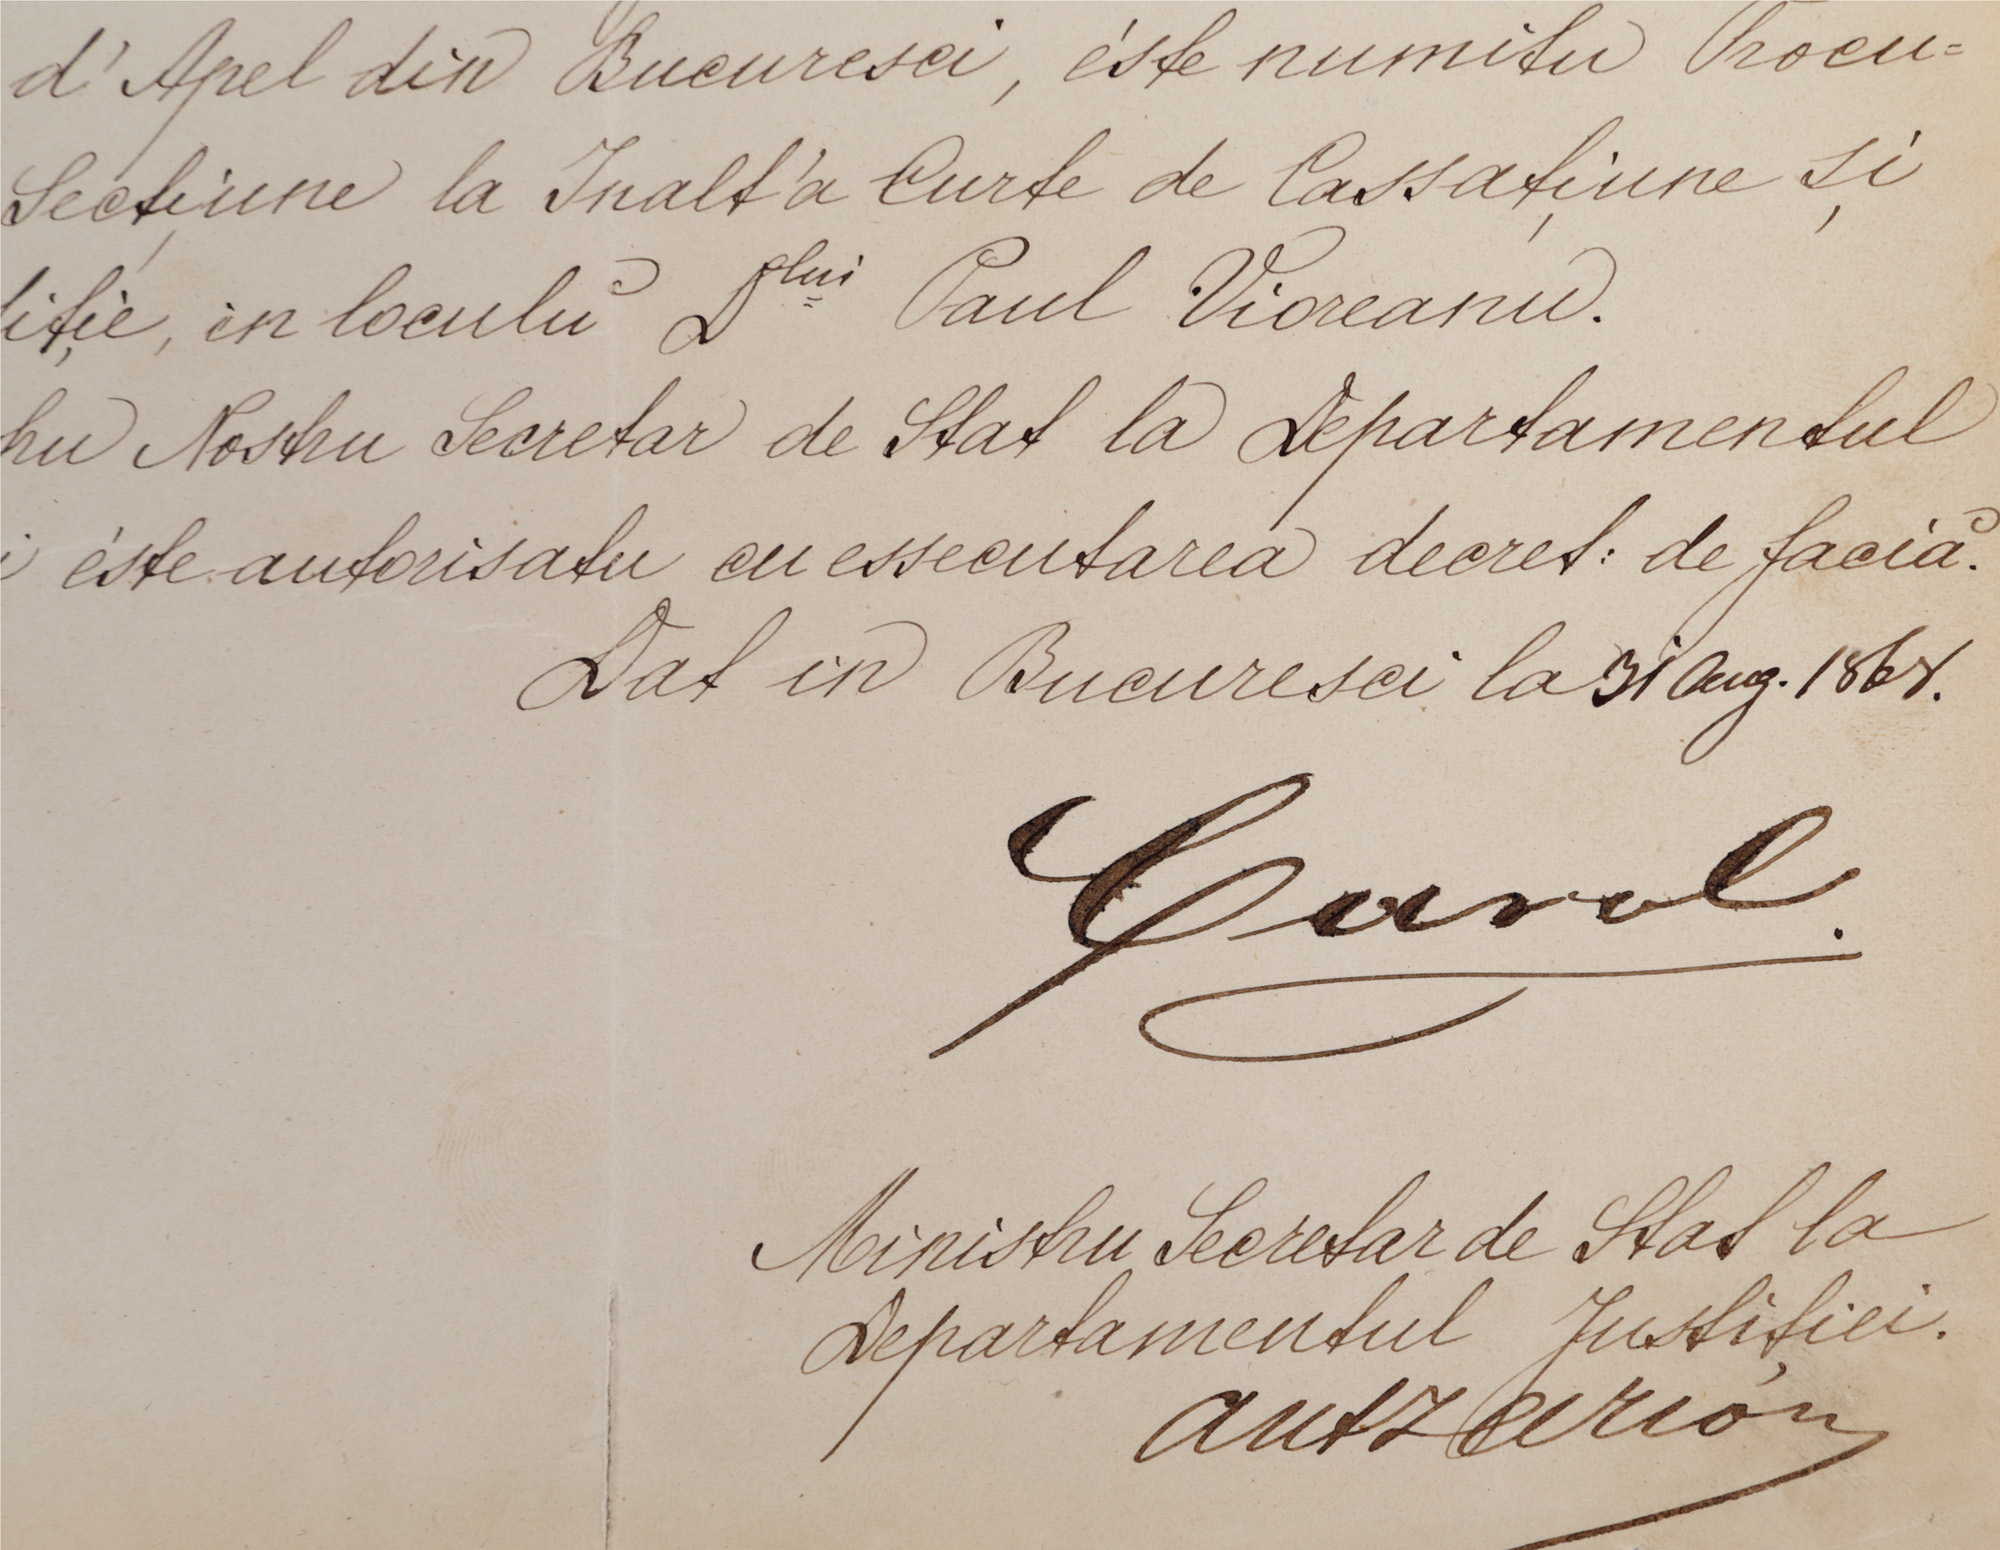 d' Apel din Bucuresci, éste numitu Procu=
Secțiune la Inalt'a Curte de Cassațiune și
tiție, in loculŭ Dlui Paul Vioreanu.
Nostru Secretar de Stat la Departamentul
i éste autorisatu cu essecutarea decret: de faciă.
Dat in Bucuresci la 31 Aug. 1868.
Carol.
Ministru Secretar de Stat la
Departamentul Justiției.